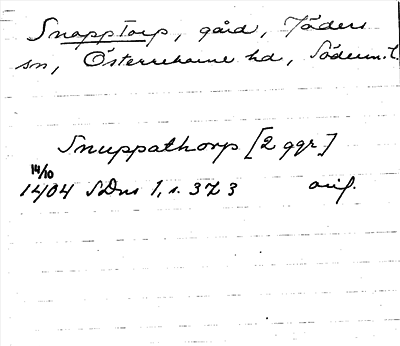 Snopptorp, gård, Jäders
sn, Österrekarne hd, Söderm. l.
Snuppathorp [2 ggr]
14/10
1404 SDns 1, s. 373 avs.